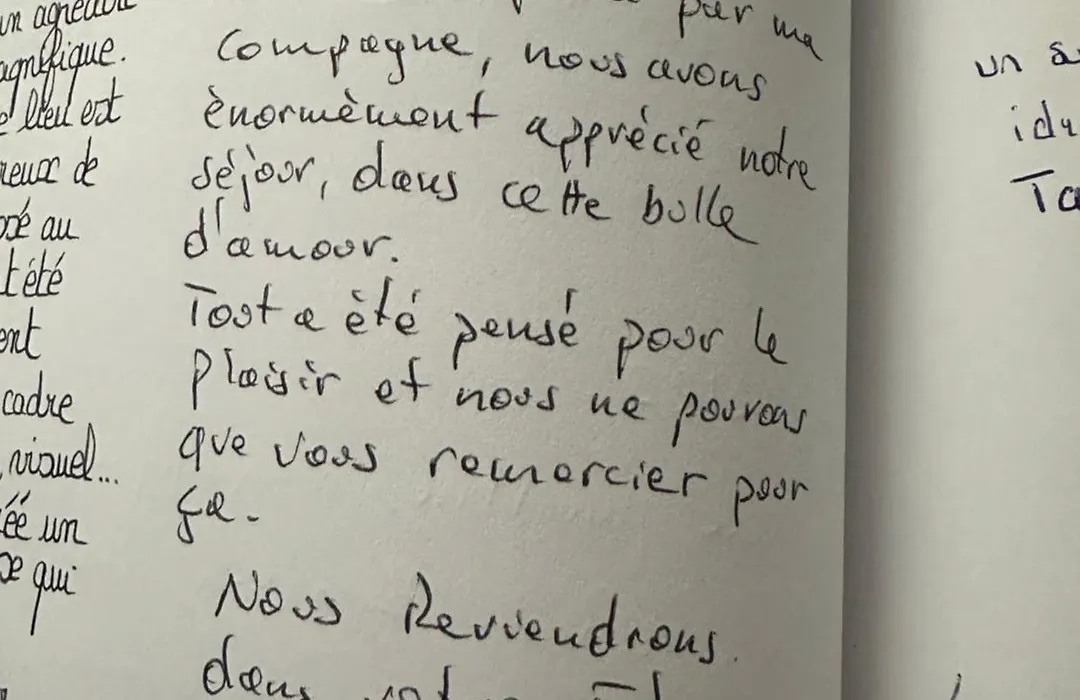 un agréable
magnifique.
lieu est
de
au
été
cadre
visuel...
un
qui
par ma
compagne, nous avons
ènormèment apprécié notre
séjour, dans cette bulle
d'amour.
Tout a èté pensé pour le
plaisir et nous ne pouvons
que vous remercier pour
ça.
Nous Reviendrons
dans
un